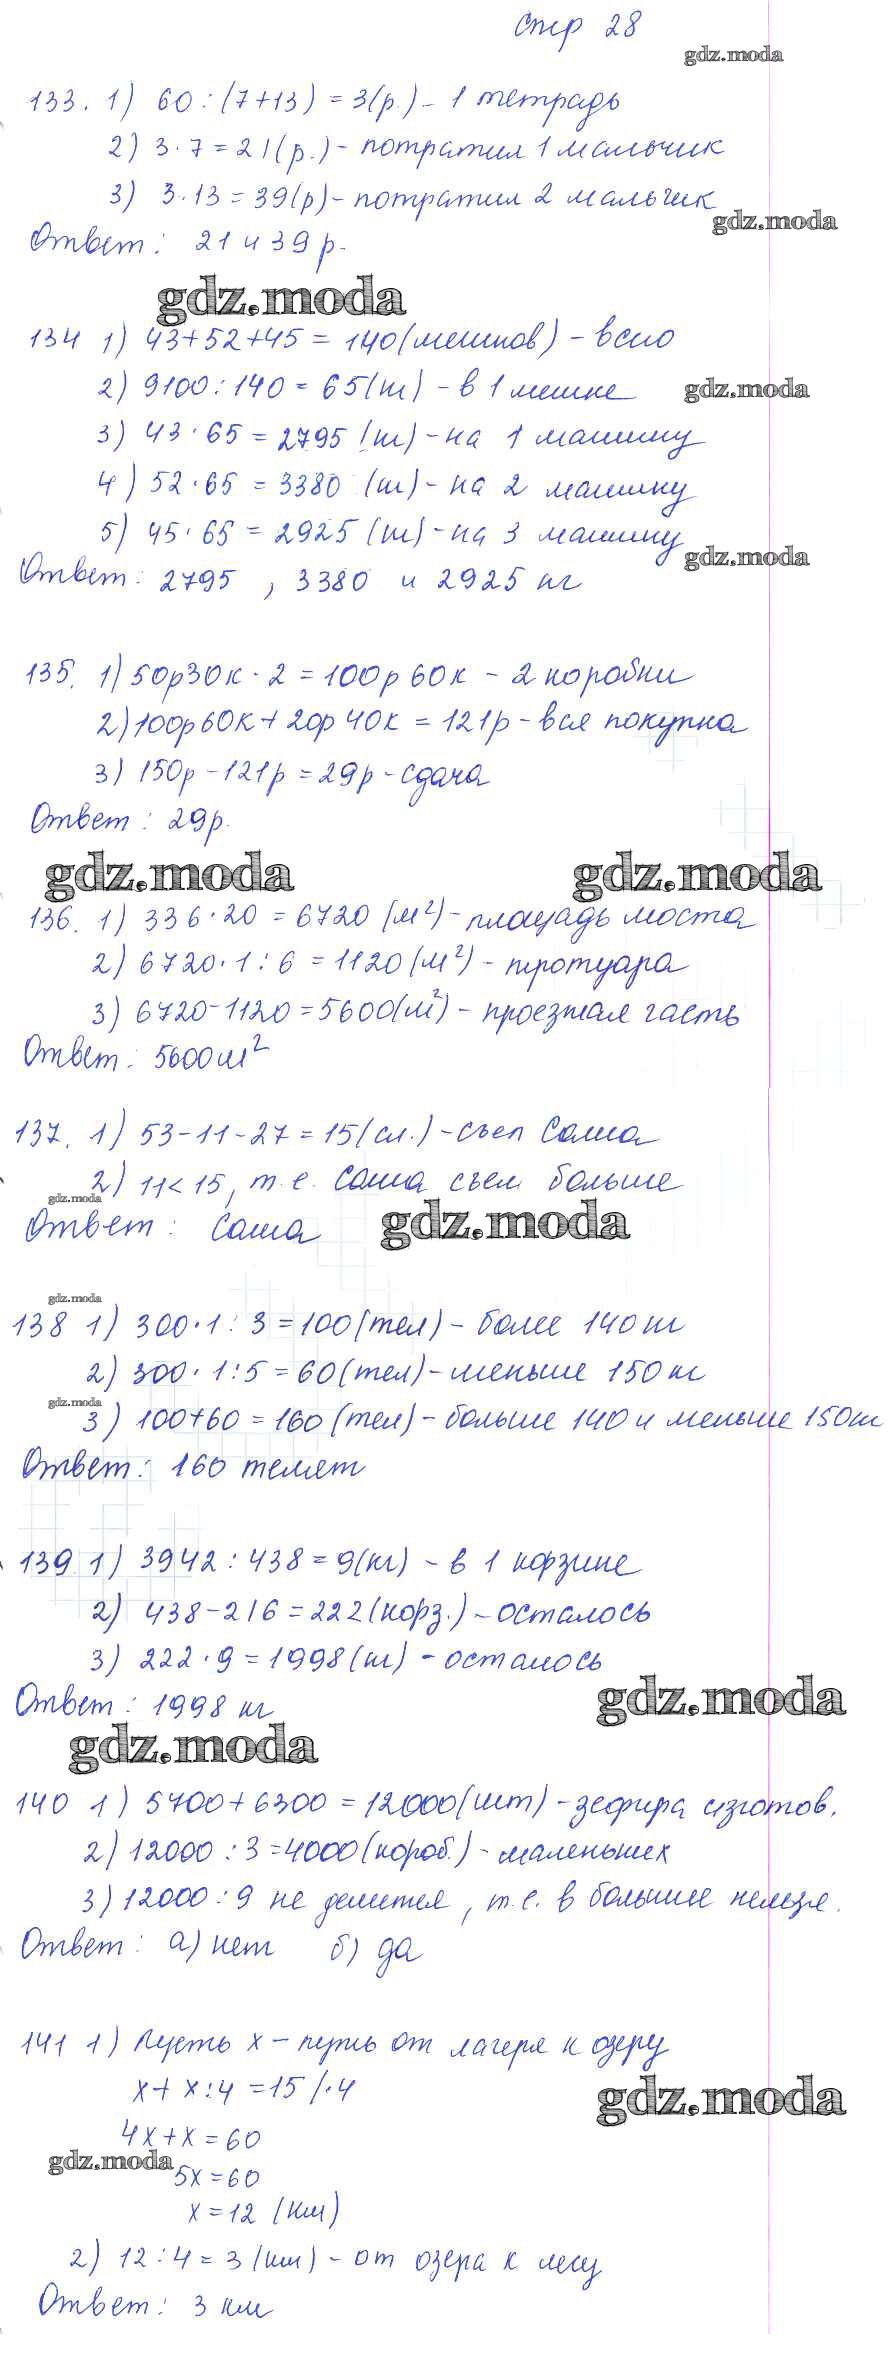 стр 28
gdz.moda
133. 1) 60 : (7+13) = 3(р.) - 1 тетрадь
2) 3·7 = 21(р.) - потратил 1 мальчик
3) 3·13 = 39(р) - потратил 2 мальчик
gdz.moda
Ответ: 21 и 39 р.
gdz.moda
134 1) 43+52+45 = 140(мешков) - всего
2) 9100 : 140 = 65(кг) - в 1 мешке
gdz.moda
3) 43·65 = 2795 (кг) - на 1 машину
4) 52·65 = 3380 (кг) - на 2 машину
5) 45·65 = 2925 (кг) - на 3 машину
gdz.moda
Ответ: 2795 , 3380 и 2925 кг
135. 1) 50р30к · 2 = 100р 60к - 2 коробки
2) 100р60к + 20р 40к = 121р - вся покупка
3) 150р - 121р = 29р - сдача
Ответ: 29р.
gdz.moda gdz.moda
136. 1) 336·20 = 6720 (м²) - площадь моста
2) 6720·1 : 6 = 1120(м²) - тротуара
3) 6720-1120 = 5600(м²) - проезжая часть
Ответ: 5600м²
137. 1) 53-11-27 = 15(сл.) - съел Саша
2) 11<15, т.е. Саша съел больше
gdz.moda
Ответ: Саша
gdz.moda
gdz.moda
138 1) 300·1 : 3 = 100(тел) - более 140кг
2) 300·1:5 = 60(тел) - меньше 150кг
gdz.moda
3) 100+60 = 160(тел) - больше 140 и меньше 150кг
Ответ: 160 телят
139 1) 3942 : 438 = 9(кг) - в 1 корзине
2) 438-216 = 222(корз.) - осталось
3) 222·9 = 1998(кг) - осталось
Ответ: 1998 кг
gdz.moda
gdz.moda
140 1) 5700+6300 = 12000(шт) - зефира изготов.
2) 12000 : 3 = 4000(короб.) - маленьких
3) 12000 : 9 не делится, т.е. в большие нельзя.
Ответ: а) нет б) да
141 1) Пусть х - путь от лагеря к озеру
х + х:4 = 15 /·4
gdz.moda
4х+х = 60
gdz.moda
5х = 60
х = 12 (км)
2) 12 : 4 = 3(км) - от озера к лесу
Ответ: 3 км